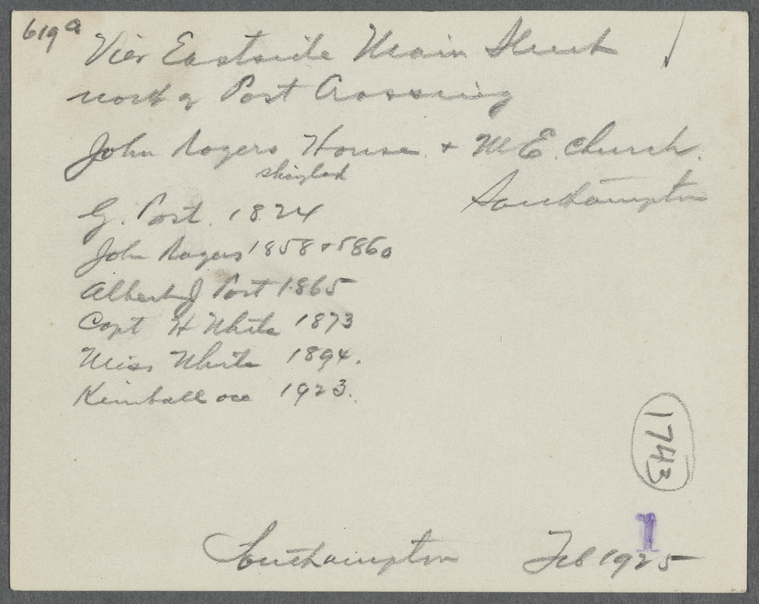 619a
Vier Eastside Main Street
north of Post Crossing
John Rogers House + M E. Church.
shingled
Southampton
G. Post. 1824
John Rogers 1858 + 5860
Albert J Post 1865
Capt H White 1873
Miss White 1894.
Kimball occ 1923.
1743
1
Southampton Feb 1925